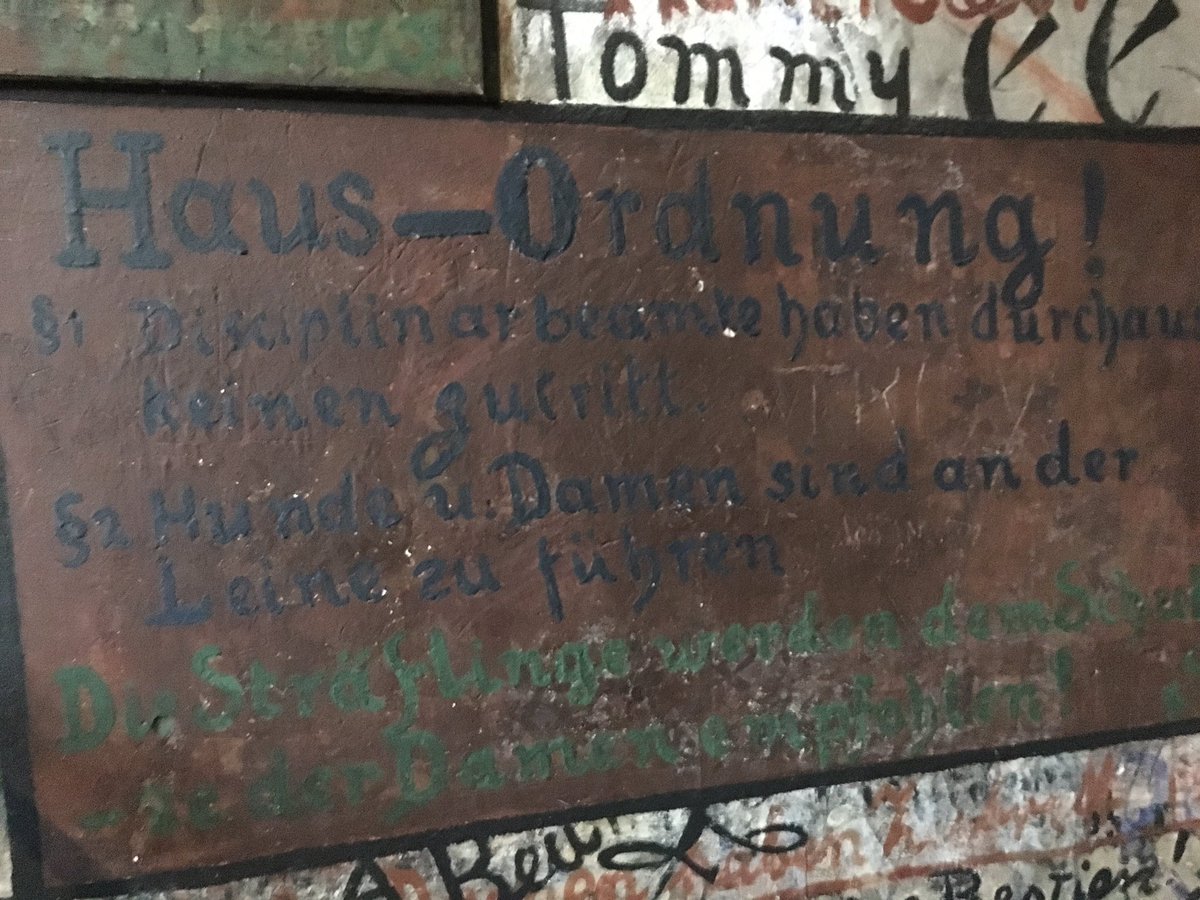 Tommy
Haus-Ordnung!
§1 Disciplinarbeamte haben durchau
keinen zutritt.
§2 Hunde u. Damen sind an der
Leine zu führen
Die Sträflinge werden dem Schut
-ze der Damen empfohlen!
Bestien